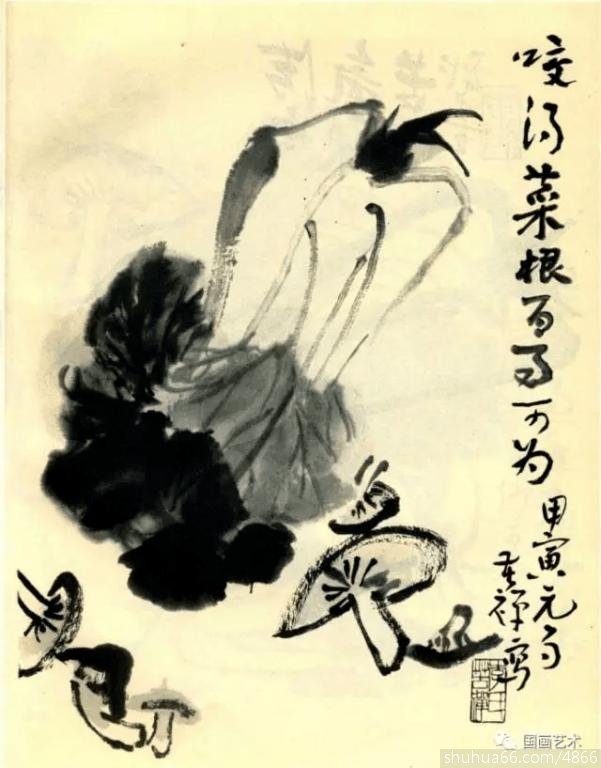 咬得菜根百事可为
甲寅元月
苦禅写
国画艺术
shuhua66.com/4866